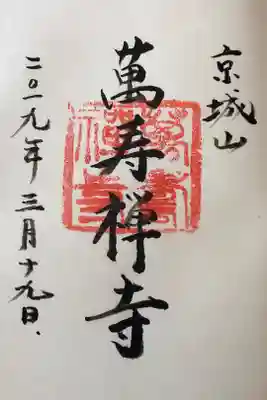 京城山
萬寿禅寺
二〇一九年三月十九日.